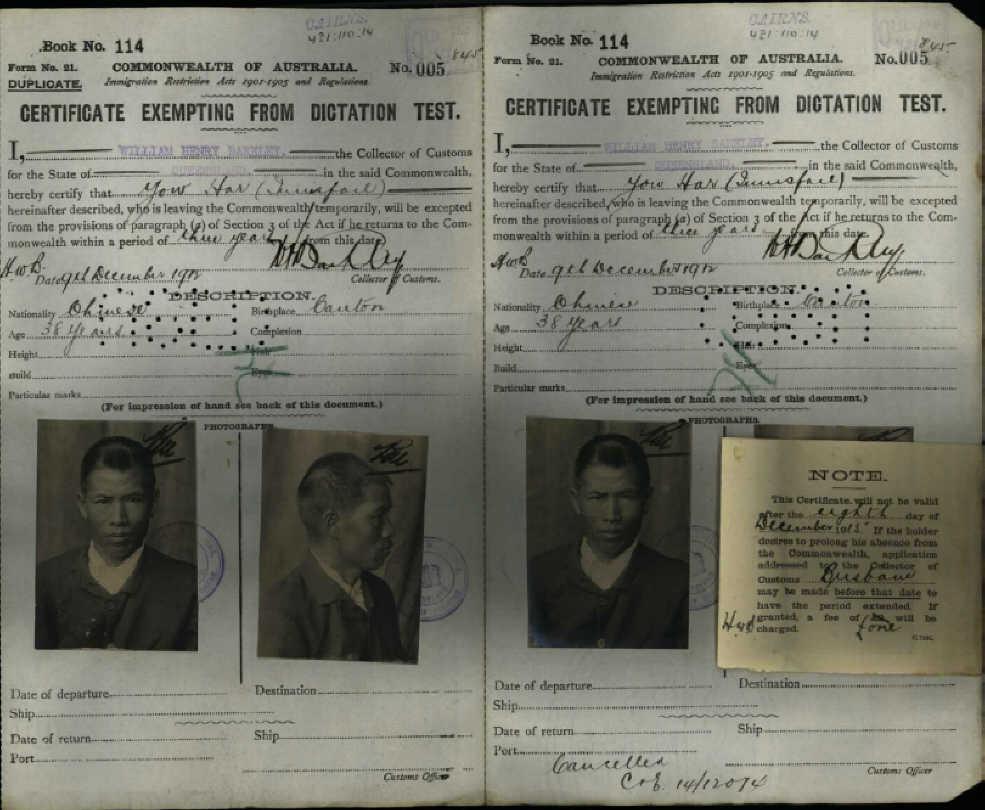 CAIRNS.
421/110/14
845
Book No. 114
Form No. 21.
COMMONWEALTH OF AUSTRALIA.
No. 005
DUPLICATE.
Immigration Restriction Acts 1901-1905 and Regulations.
CERTIFICATE EXEMPTING FROM DICTATION TEST.
I, WILLIAM HENRY BARKLEY, the Collector of Customs
for the State of QUEENSLAND, in the said Commonwealth,
hereby certify that Yow Har (Innisfail)
hereinafter described, who is leaving the Commonwealth temporarily, will be excepted
from the provisions of paragraph (a) of Section 3 of the Act if he returns to the Com-
monwealth within a period of three years from this date.
HWB.
Date 9th December 1912
WHBarkley
Collector of Customs.
DESCRIPTION.
Nationality Chinese
Birthplace Canton
Age 38 Years
Complexion
Height
Hair
Build
Eyes
Particular marks
(For impression of hand see back of this document.)
PHOTOGRAPHS.
Date of departure
Destination
Ship
Date of return
Ship
Port
Customs Officer
CAIRNS.
421/110/14
845
Book No. 114
Form No. 21.
COMMONWEALTH OF AUSTRALIA.
No. 005
Immigration Restriction Acts 1901-1905 and Regulations.
CERTIFICATE EXEMPTING FROM DICTATION TEST.
I, WILLIAM HENRY BARKLEY, the Collector of Customs
for the State of QUEENSLAND, in the said Commonwealth,
hereby certify that Yow Har (Innisfail)
hereinafter described, who is leaving the Commonwealth temporarily, will be excepted
from the provisions of paragraph (a) of Section 3 of the Act if he returns to the Com-
monwealth within a period of three years from this date.
HWB
Date 9th December 1912
WHBarkley
Collector of Customs.
DESCRIPTION.
Nationality Chinese
Birthplace Canton
Age 38 Years
Complexion
Height
Hair
Build
Eyes
Particular marks
(For impression of hand see back of this document.)
PHOTOGRAPHS.
NOTE.
This Certificate will not be valid
after the eighth day of
December 1915 If the holder
desires to prolong his absence from
the Commonwealth, application
addressed to the Collector of
Customs Brisbane
may be made before that date to
have the period extended. If
granted, a fee of £one will be
charged.
HWB
C.7595.
Date of departure
Destination
Ship
Date of return
Ship
Port
Customs Officer
Cancelled